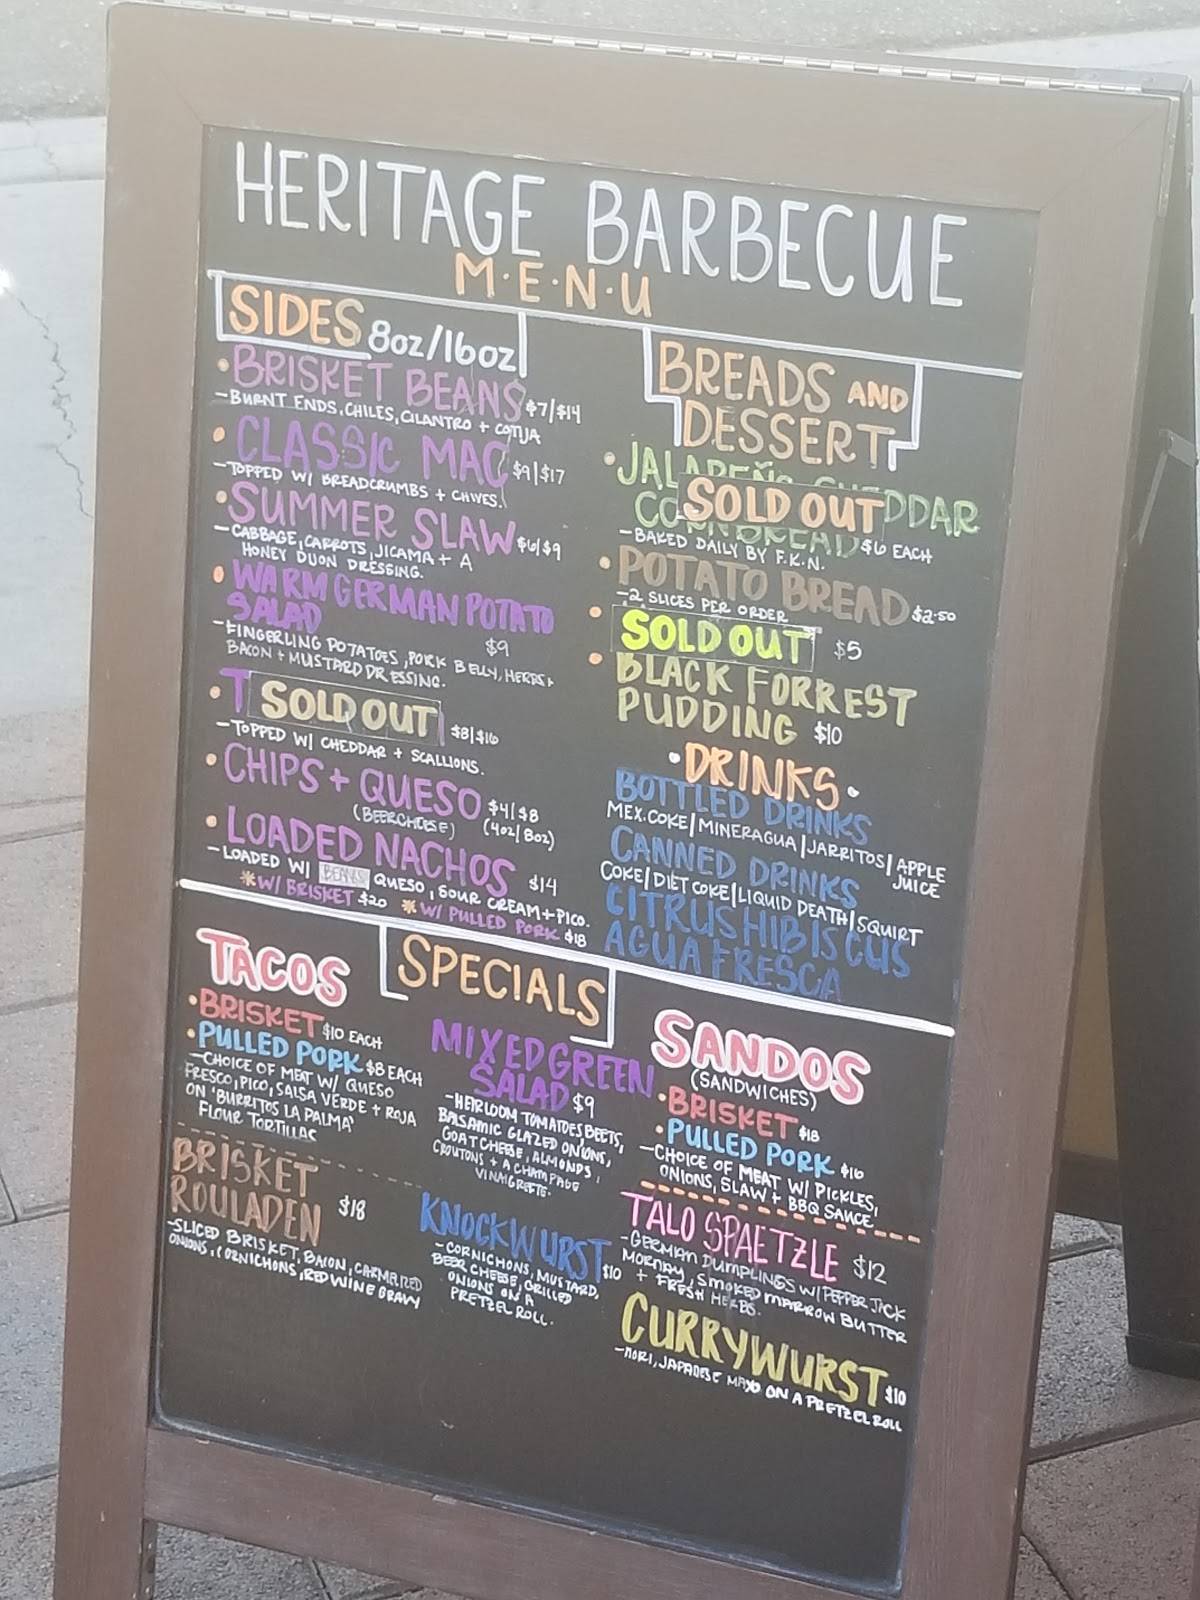 HERITAGE BARBECUE
M·E·N·U
SIDES 8oz/16oz
• BRISKET BEANS $7/$14
- BURNT ENDS, CHILES, CILANTRO + COTIJA
• CLASSIC MAC $9/$17
- TOPPED W/ BREADCRUMBS + CHIVES.
• SUMMER SLAW $6/$9
- CABBAGE, CARROTS, JICAMA + A
HONEY DIJON DRESSING.
• WARM GERMAN POTATO
SALAD $9
- FINGERLING POTATOES, PORK BELLY, HERBS +
BACON + MUSTARD DRESSING.
• T SOLD OUT $8/$16
- TOPPED W/ CHEDDAR + SCALLIONS.
• CHIPS + QUESO $4/$8
(BEERCHEESE) (4oz/8oz)
• LOADED NACHOS $14
- LOADED W/ BEANS QUESO, SOUR CREAM + PICO.
* W/ BRISKET $20 * W/ PULLED PORK $18
BREADS AND
DESSERT
• JALAPEÑO CHEDDAR
CORNBREAD $6 EACH
SOLD OUT
- BAKED DAILY BY F.K.N.
• POTATO BREAD $2.50
- 2 SLICES PER ORDER
• SOLD OUT $5
• BLACK FORREST
PUDDING $10
• DRINKS •
BOTTLED DRINKS
MEX.COKE/MINERAGUA/JARRITOS/APPLE
JUICE
CANNED DRINKS
COKE/DIET COKE/LIQUID DEATH/SQUIRT
CITRUS HIBISCUS
AGUA FRESCA
SPECIALS
TACOS
• BRISKET $10 EACH
• PULLED PORK $8 EACH
- CHOICE OF MEAT W/ QUESO
FRESCO, PICO, SALSA VERDE + ROJA
ON 'BURRITOS LA PALMA'
FLOUR TORTILLAS
BRISKET
ROULADEN $18
- SLICED BRISKET, BACON, CARMELIZED
ONIONS, CORNICHONS, RED WINE GRAVY
MIXED GREEN
SALAD $9
- HEIRLOOM TOMATOES, BEETS,
BALSAMIC GLAZED ONIONS,
GOAT CHEESE, ALMONDS,
CROUTONS + A CHAMPAGE
VINAIGRETTE.
KNOCKWURST $10
- CORNICHONS, MUSTARD,
BEER CHEESE, GRILLED
ONIONS ON A
PRETZEL ROLL.
SANDOS
(SANDWICHES)
• BRISKET $18
• PULLED PORK $16
- CHOICE OF MEAT W/ PICKLES,
ONIONS, SLAW + BBQ SAUCE
TALO SPAETZLE $12
- GERMAN DUMPLINGS W/ PEPPER JACK
MORNAY, SMOKED MARROW BUTTER
+ FRESH HERBS.
CURRYWURST $10
- NORI, JAPANESE MAYO ON A PRETZEL ROLL